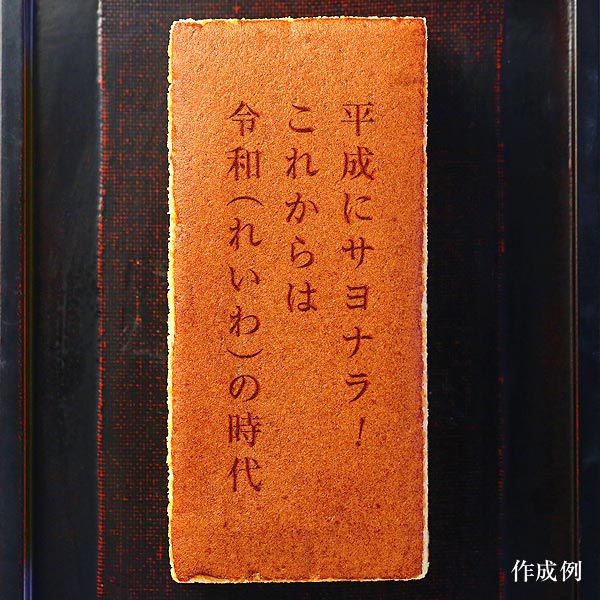 平成にサヨナラ！
これからは
令和（れいわ）の時代
作成例